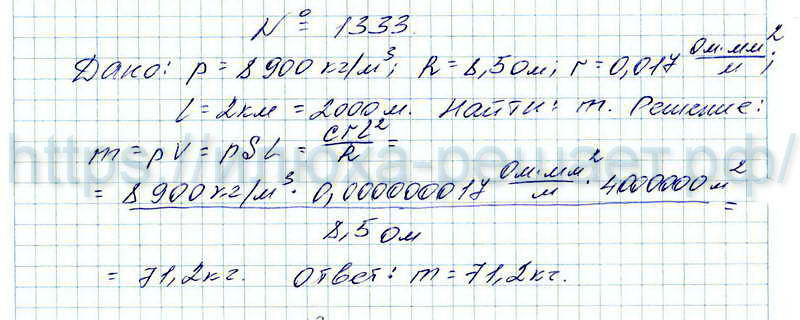 № 1333.
Дано: ρ = 8900 кг/м³; R = 8,50м; r = 0,017 Ом·мм²/м;
l = 2км = 2000м. Найти: m. Решение:
m = ρV = ρSL = crl²/R =
= 8900 кг/м³ · 0,000000017 Ом·мм²/м · 4000000м² / 8,5 Ом =
= 71,2кг. Ответ: m = 71,2кг.